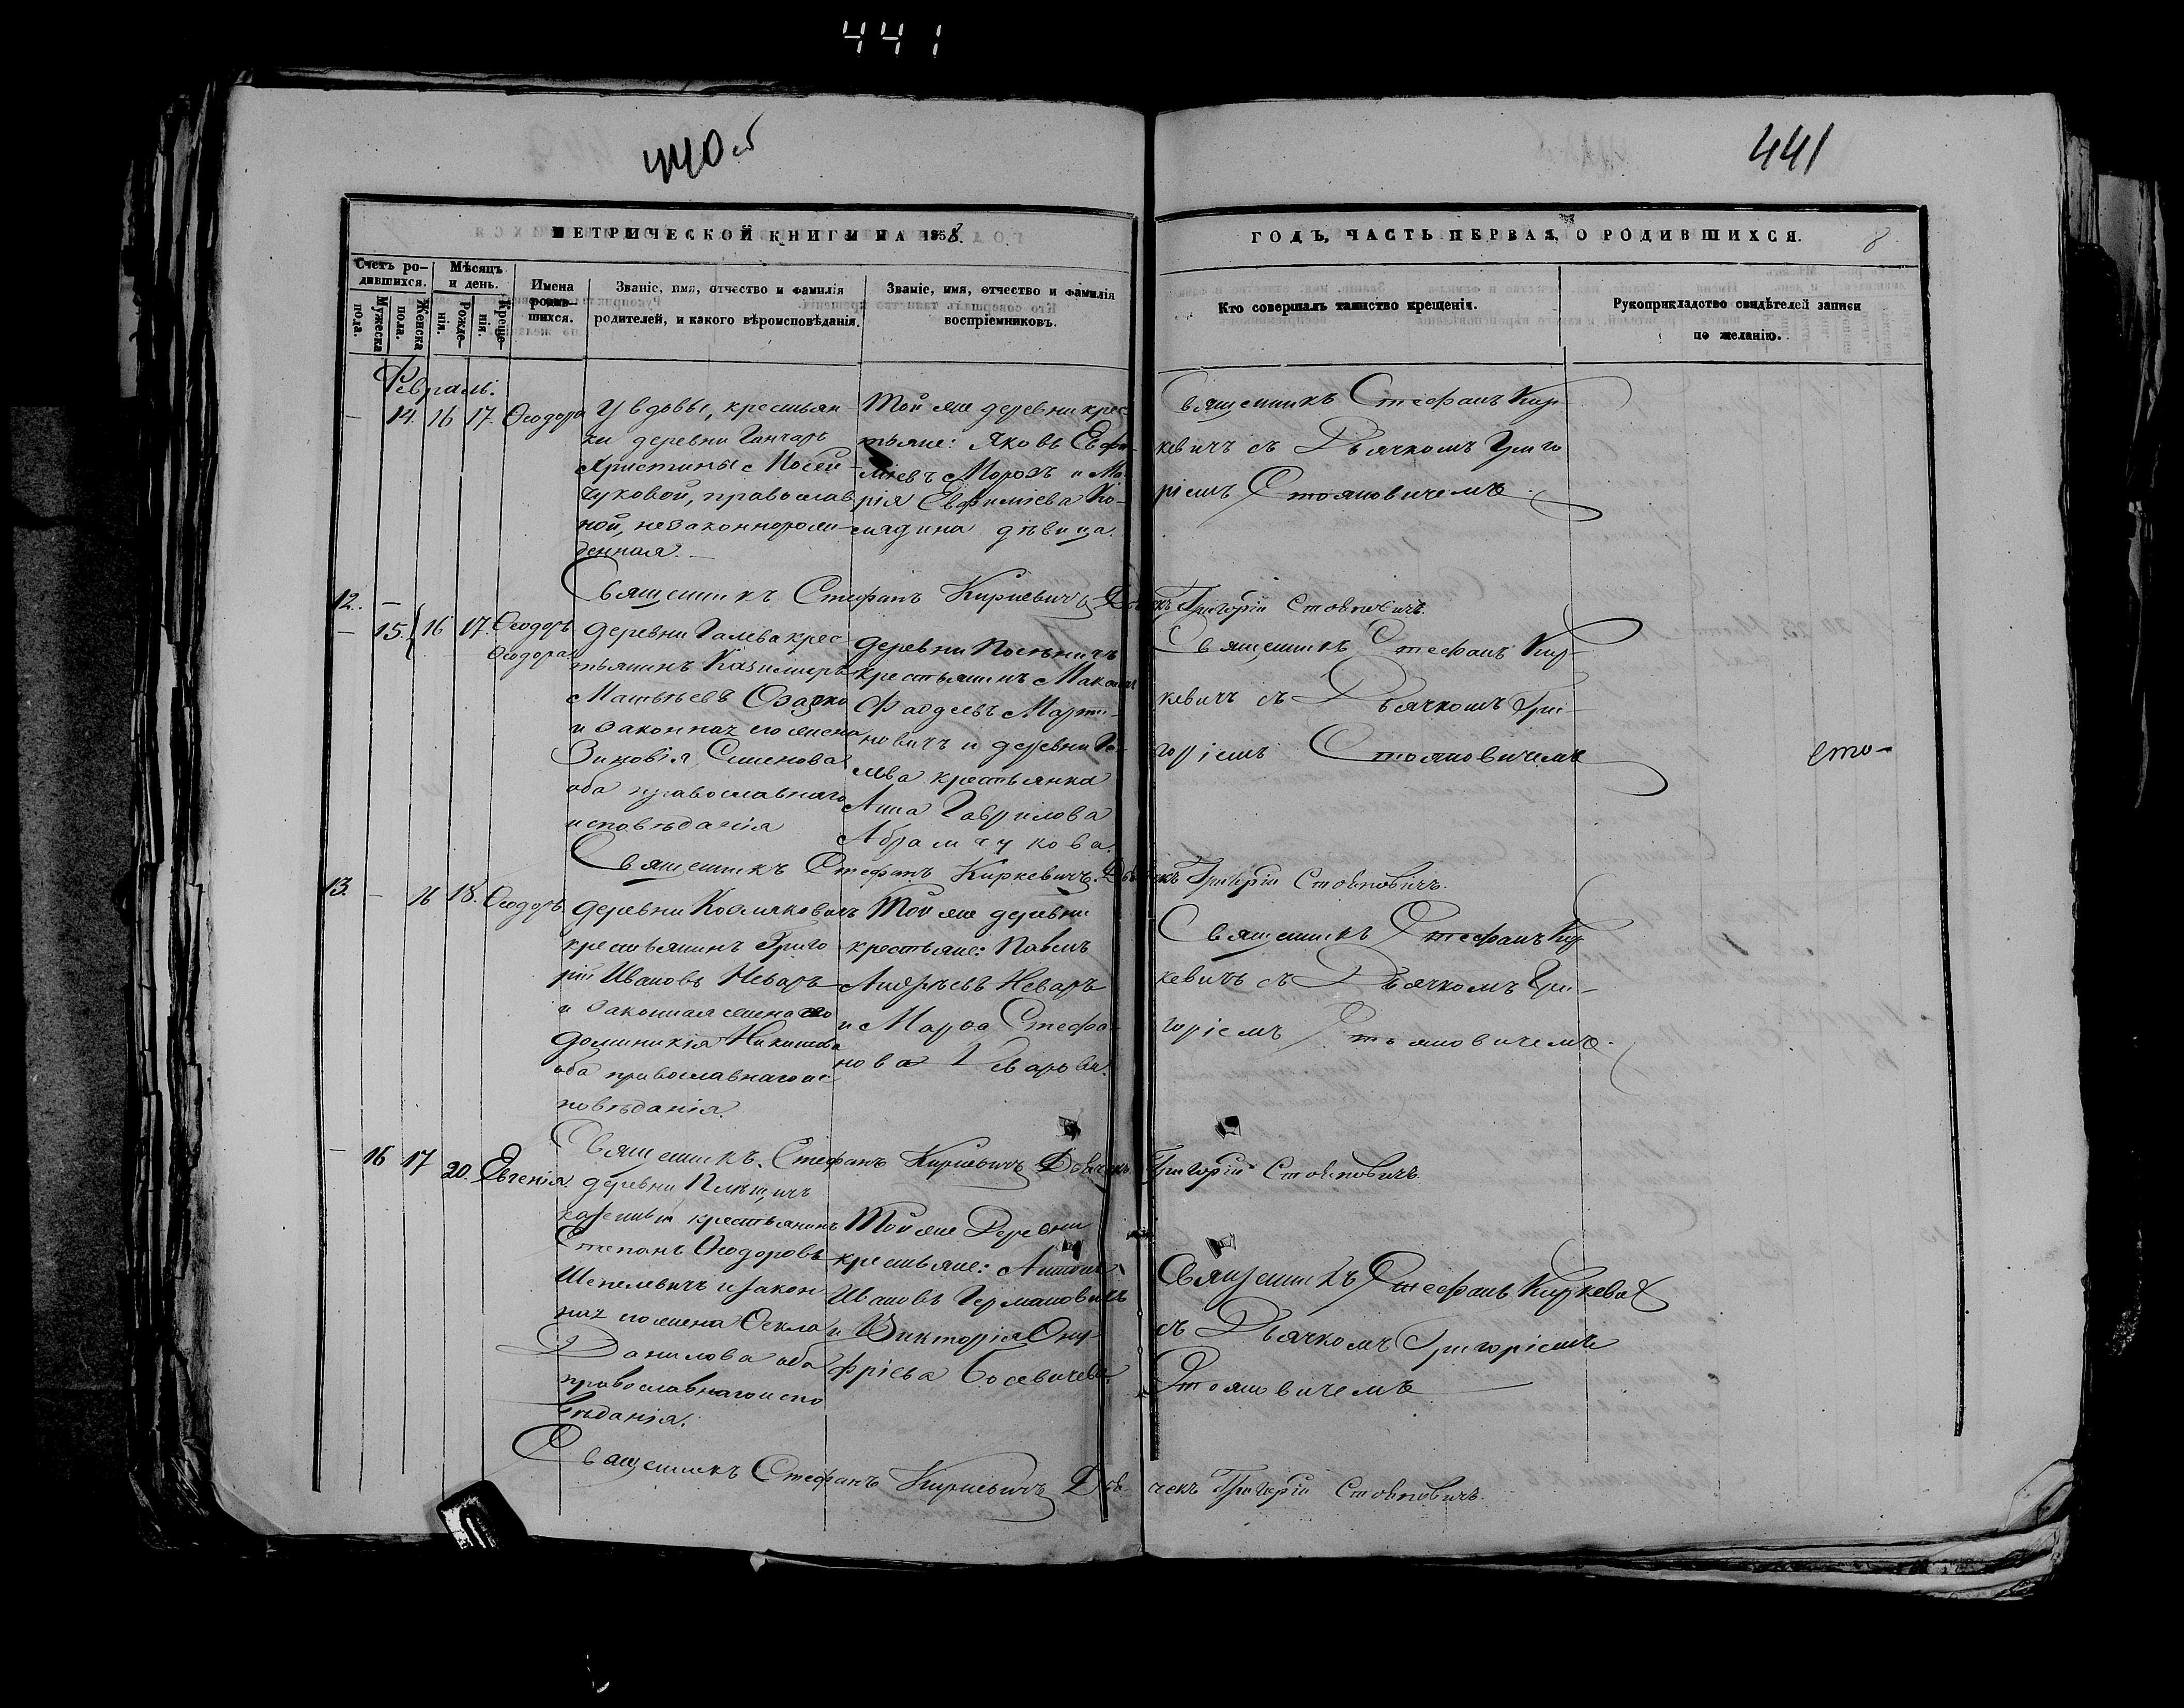 441
440 об
441
МЕТРИЧЕСКОЙ КНИГИ НА 1858.
ГОДЪ, ЧАСТЬ ПЕРВАЯ, О РОДИВШИХСЯ.
8
Счетъ ро-
дившихся.
Мужеска
пола.
Женска
пола.
Мѣсяцъ
и день.
Рожде-
нія.
Креще-
нія.
Имена
родив-
шихся.
Званіе, имя, отчество и фамилія
родителей, и какого вѣроисповѣданія.
Званіе, имя, отчество и фамилія
воспріемниковъ.
Кто совершалъ таинство крещенія.
Рукоприкладство свидѣтелей записи
по желанію.
Февраль.
— 14. 16 17. Ѳеодора
У вдовы, крестьян-
ки деревни Ганчаръ
Христины
чуковой, православ
ной, незаконнорож-
денная.
Той же деревни крес
тьяне: Яковъ Евфи-
міевъ Морозъ и Ма-
рія Евфиміева Ко-
дѣвица.
Священникъ Стефанъ Кир-
кевичъ съ Дьячкомъ Григо
ріемъ Стояновичемъ
Священникъ Стефанъ Киркевичъ Дьячекъ Григорій Стояновичъ.
12. —
— 15. 16 17. Ѳеодоръ
Ѳеодора
деревни Галева крес
тьянинъ Казимиръ
Матвѣевъ
и законная его жена
Зиновія Семенова
оба православнаго
исповѣданія
деревни
крестьянинъ Максимъ
Фадѣевъ Марти-
новичъ и деревни Га-
лева крестьянка
Анна Гаврилова
Абрамчукова.
Священникъ Стефанъ Кир-
кевичъ съ Дьячкомъ Гри-
горіемъ Стояновичемъ
сто-
Священникъ Стефанъ Киркевичъ. Дьячекъ Григорій Стояновичъ.
13. — 16 18. Ѳеодоръ
деревни
крестьянинъ Григо
рій Ивановъ Неваръ
и законная жена его
Доминикія Никитова
оба православнаго ис
повѣданія.
Той же деревни
крестьяне: Павелъ
Андреевъ Неваръ
и Марѳа Стефа-
нова
Священникъ Стефанъ Кир
кевичъ съ Дьячкомъ Гри-
горіемъ Стояновичемъ.
Священникъ Стефанъ Киркевичъ Дьячекъ Григорій Стояновичъ.
— 16 17 20. Евгенія
деревни Плещичъ
казенный крестьянинъ
Степанъ Ѳеодоровъ
Шепелевичъ и закон
ная его жена Ѳекла
Данилова оба
православнаго испо
вѣданія.
Той же Деревни
крестьяне: Антонъ
Ивановъ Германовичъ
и Викторія Ону-
фріева
Священникъ Стефанъ Киркевичъ
съ Дьячкомъ Григоріемъ
Стояновичемъ
Священникъ Стефанъ Киркевичъ Дьячекъ Григорій Стояновичъ.